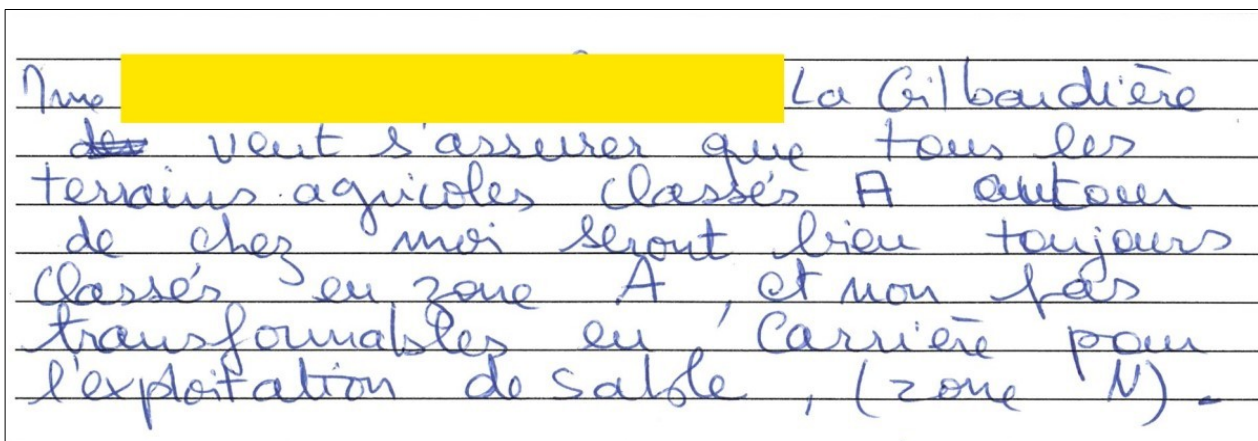 Mme La Gilbaudière
veut s'assurer que tous les
terrains agricoles classés A autour
de chez moi seront bien toujours
classés en zone A, et non pas
transformables en carrière pour
l'exploitation de sable, (zone N).